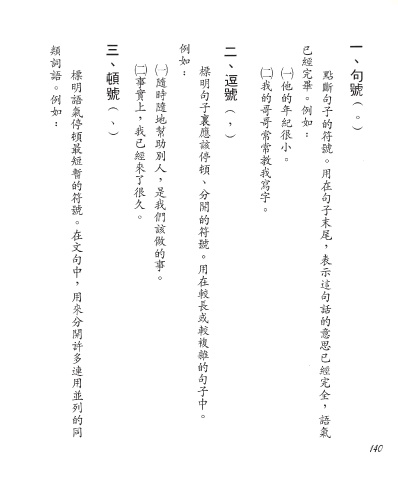 一、句號（。）
點斷句子的符號。用在句子末尾，表示這句話的意思已經完全，語氣
已經完畢。例如：
㈠他的年紀很小。
㈡我的哥哥常常教我寫字。
二、逗號（，）
標明句子裏應該停頓、分開的符號。用在較長或較複雜的句子中。
例如：
㈠隨時隨地幫助別人，是我們該做的事。
㈡事實上，我已經來了很久。
三、頓號（、）
標明語氣停頓最短暫的符號。在文句中，用來分開許多連用並列的同
類詞語。例如：
140